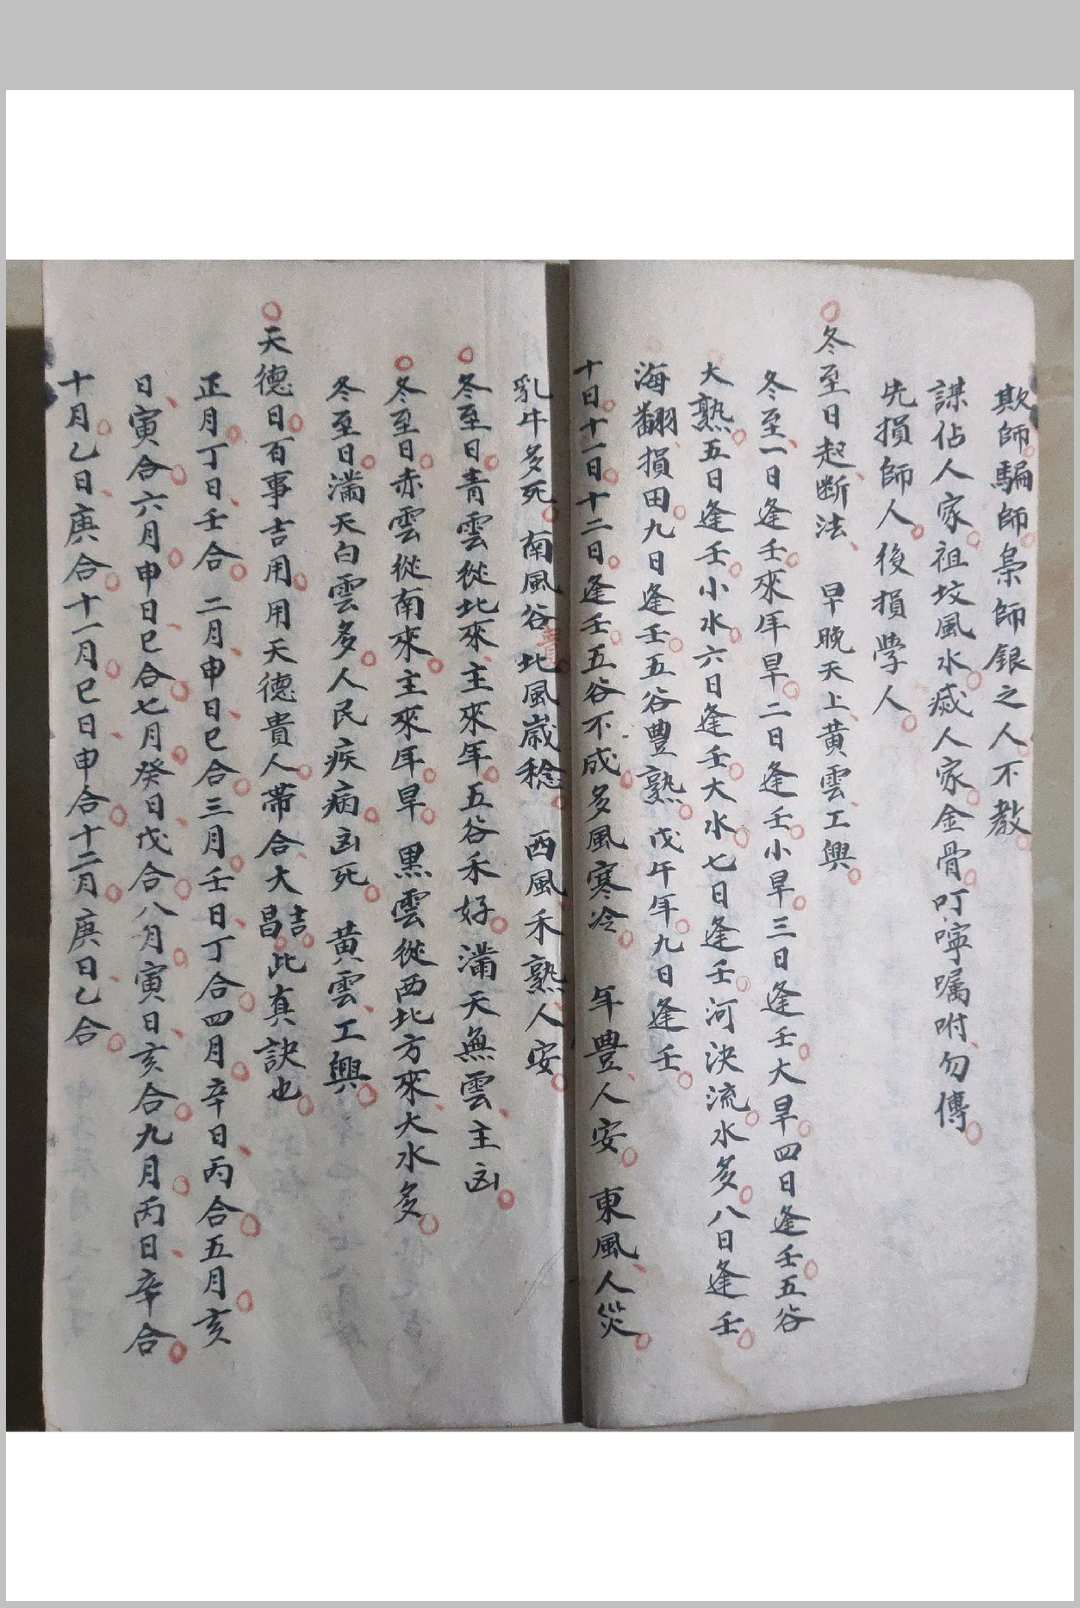 欺師騙師梟師銀之人不教
謀佔人家祖坟風水戚人家金骨叮嚀嘱咐勿傳
先損師人後損學人
冬至日起断法 早晚天上黄雲工興
冬至一日逢壬來年旱二日逢壬小旱三日逢壬大旱四日逢壬五谷
大熟五日逢壬小水六日逢壬大水七日逢壬河決流水多八日逢壬
海翻損田九日逢壬五谷豐熟戊午年九日逢壬
十日十一日十二日逢壬五谷不成多風寒冷 年豐人安 東風人災
乳牛多死 南風谷貴北風歲稔 西風禾熟人安
冬至日青雲從北來主來年五谷禾好滿天無雲主凶
冬至日赤雲從南來主來年旱 黑雲從西北方來大水多
冬至日滿天白雲多人民疾病凶死 黄雲工興
天德日百事吉用用天德貴人帶合大吉昌此真訣也
正月丁日壬合二月申日巳合三月壬日丁合四月辛日丙合五月亥
日寅合六月申日巳合七月癸日戊合八月寅日亥合九月丙日辛合
十月乙日庚合十一月巳日申合十二月庚日乙合